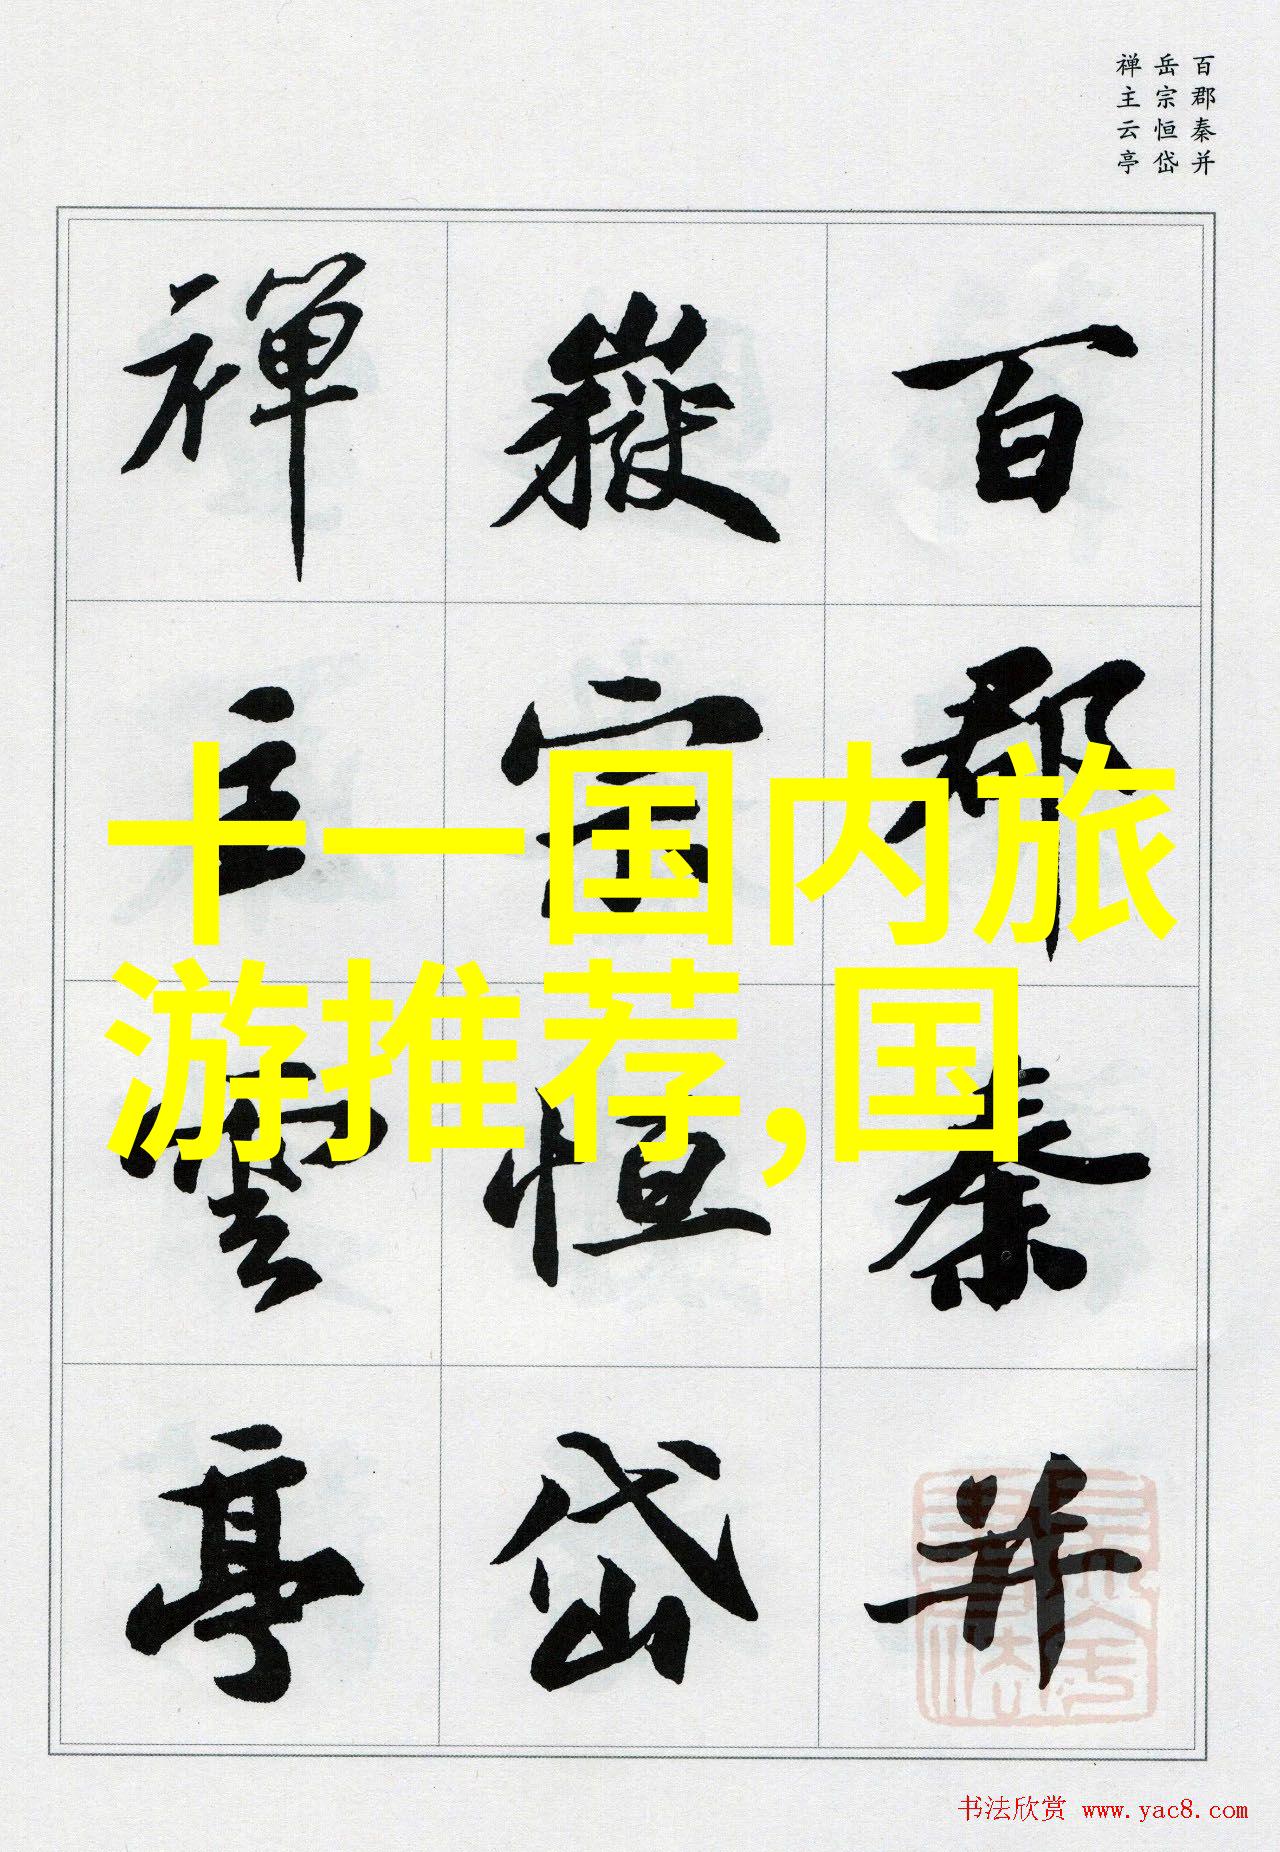 百郡秦并
岳宗恒岱
禅主云亭
百郡秦并
嶽宗恒岱
禅主雲亭
卡一国内旅
游推荐,国
书法欣赏 www.yac8.com